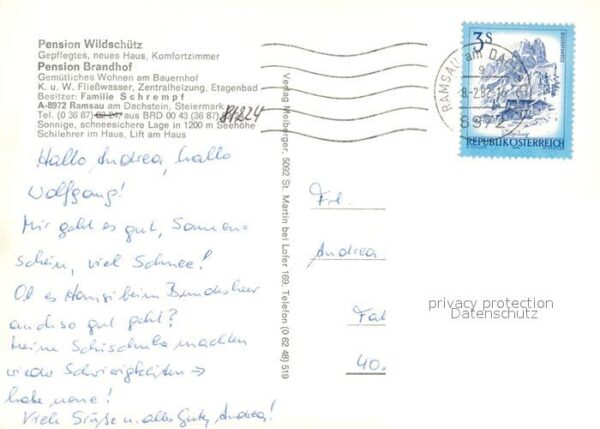 Pension Wildschütz
Gepflegtes, neues Haus, Komfortzimmer
Pension Brandhof
Gemütliches Wohnen am Bauernhof
K. u. W. Fließwasser, Zentralheizung, Etagenbad
Besitzer: Familie Schrempf
A-8972 Ramsau am Dachstein, Steiermark
Tel. (0 36 87) 62 247 aus BRD 00 43 (36 87) 81224
Sonnige, schneesichere Lage in 1200 m Seehöhe
Schilehrer im Haus, Lift am Haus
Hallo Andrea, hallo
Wolfgang!
Mir geht es gut, Sonnen-
schein, viel Schnee!
Ob es Hansi beim Bundesheer
auch so gut geht?
Meine Schischuhe machten
wieder Schwierigkeiten →
habe neue!
Viele Grüße u. alles Gute, Andrea!
Verlag Meiberger, 5092 St. Martin bei Lofer 169, Telefon (0 62 48) 519
3 S
REPUBLIK ÖSTERREICH
RAMSAU am DACHSTEIN
8972
Frl.
Andrea
40.
privacy protection
Datenschutz